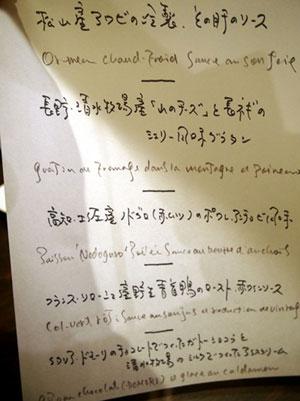 松山産アワビの冷製、その肝のソース
Ormeau chaud-froid Sauce au son foie
長野・清水牧場産「山のチーズ」と長ネギの
シェリー風味グラタン
gratin au fromage dans la montagne et poireau
高知・土佐産ノドグロ(赤ムツ)のポワレ アンチョビ風味
Poisson "Nodoguro" Poêlé Sauce au beurre d'anchois
フランス・ロワール産野生青首鴨のロースト 赤ワインソース
Col-vert rôti Sauce au son jus et reduction de vin rouge
のチョコレートでつくったガトーショコラと
清水牧場のミルクでつくったアイスクリーム
chocolat (DOMORI) et glace au caldamon